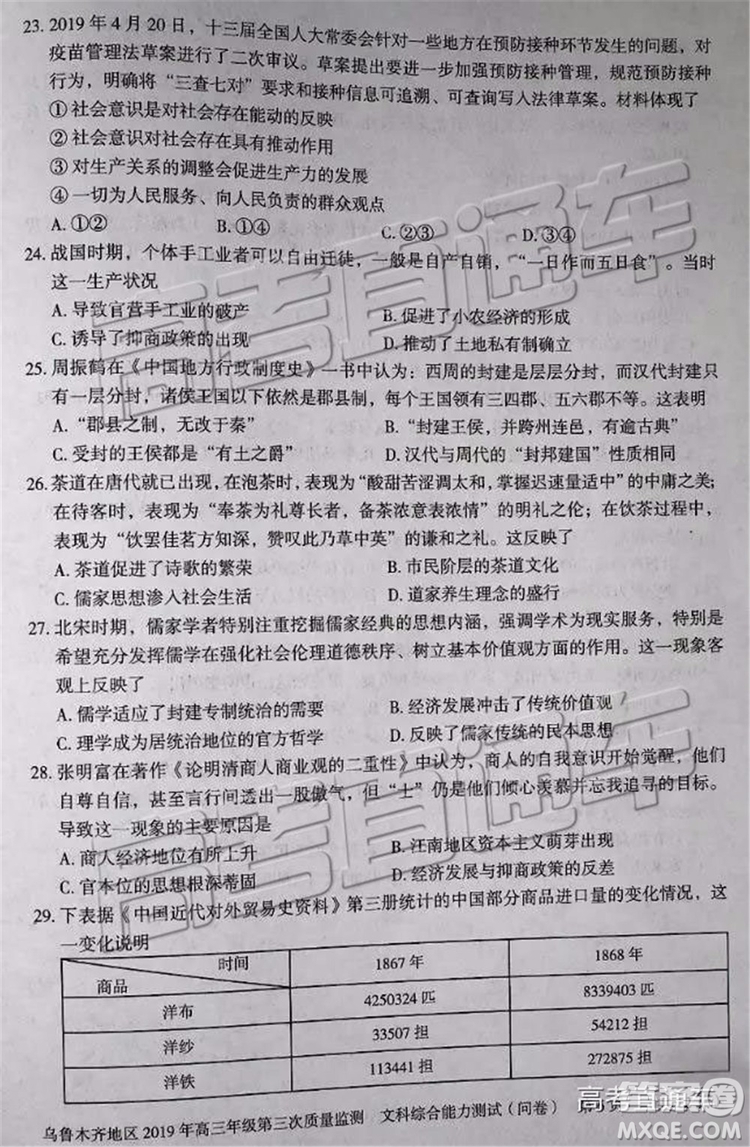 23. 2019 年 4 月 20 日，十三届全国人大常委会针对一些地方在预防接种环节发生的问题，对
疫苗管理法草案进行了二次审议。草案提出要进一步加强预防接种管理，规范预防接种
行为，明确将“三查七对”要求和接种信息可追溯、可查询写入法律草案。材料体现了
①社会意识是对社会存在能动的反映
②社会意识对社会存在具有推动作用
③对生产关系的调整会促进生产力的发展
④一切为人民服务、向人民负责的群众观点
A. ①② B. ①④ C. ②③ D. ③④
24. 战国时期，个体手工业者可以自由迁徙，一般是自产自销，“一日作而五日食”。当时
这一生产状况
A. 导致官营手工业的破产 B. 促进了小农经济的形成
C. 诱导了抑商政策的出现 D. 推动了土地私有制确立
25. 周振鹤在《中国地方行政制度史》一书中认为：西周的封建是层层分封，而汉代封建只
有一层分封，诸侯王国以下依然是郡县制，每个王国领有三四郡、五六郡不等。这表明
A. “郡县之制，无改于秦” B. “封建王侯，并跨州连邑，有逾古典”
C. 受封的王侯都是“有土之爵” D. 汉代与周代的“封邦建国”性质相同
26. 茶道在唐代就已出现，在泡茶时，表现为“酸甜苦涩调太和，掌握迟速量适中”的中庸之美；
在待客时，表现为“奉茶为礼尊长者，备茶浓意表浓情”的明礼之伦；在饮茶过程中，
表现为“饮罢佳茗方知深，赞叹此乃草中英”的谦和之礼。这反映了
A. 茶道促进了诗歌的繁荣 B. 市民阶层的茶道文化
C. 儒家思想渗入社会生活 D. 道家养生理念的盛行
27. 北宋时期，儒家学者特别注重挖掘儒家经典的思想内涵，强调学术为现实服务，特别是
希望充分发挥儒学在强化社会伦理道德秩序、树立基本价值观方面的作用。这一主张客
观上反映了
A. 儒学适应了封建专制统治的需要 B. 经济发展冲击了传统价值观
C. 理学成为居统治地位的官方哲学 D. 反映了儒家传统的民本思想
28. 张明富在著作《论明清商人商业观的二重性》中认为，商人的自我意识开始觉醒，他们
自尊自信，甚至言行间透出一股傲气，但“士”仍是他们倾心羡慕并忘我追寻的目标。
导致这一现象的主要原因是
A. 商人经济地位有所上升 B. 江南地区资本主义萌芽出现
C. 官本位的思想根深蒂固 D. 经济发展与抑商政策的反差
29. 下表据《中国近代对外贸易史资料》第三册统计的中国部分商品进口量的变化情况，这
一变化说明
时间 1867 年 1868 年
商品
洋布 4250324 匹 8339403 匹
洋纱 33507 担 54212 担
洋铁 113441 担 272875 担
乌鲁木齐地区 2019 年高三年级第三次质量监测 文科综合能力测试（问卷）
高考直通车
高考直通车
高考直通车
MXQE.COM